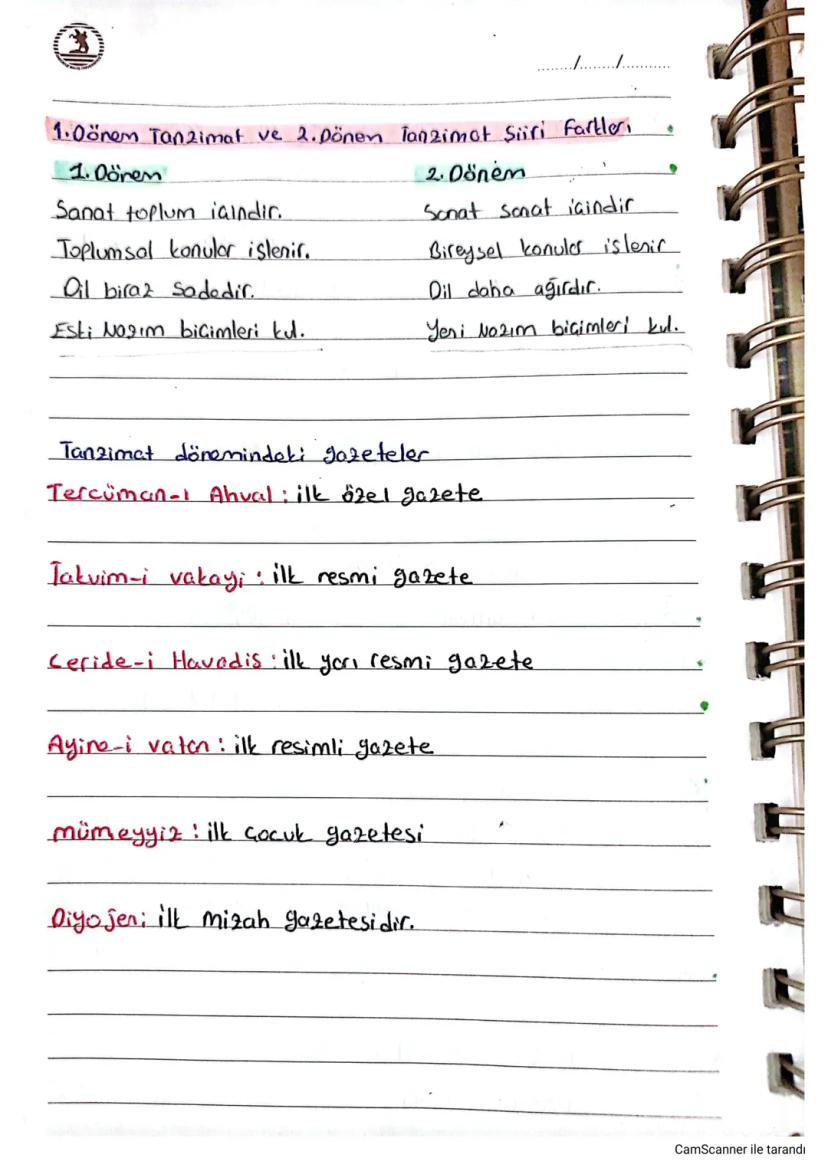 ....../......./..........
1. Dönem Tanzimat ve 2. Dönem Tanzimat Şiiri Farkları
1. Dönem 2. Dönem
Sanat toplum içindir. Sanat sanat içindir
Toplumsal konular işlenir. Bireysel konular işlenir
Dil biraz sadedir. Dil daha ağırdır.
Eski Nazım biçimleri kul. Yeni Nazım biçimleri kul.
Tanzimat dönemindeki gazeteler
Tercüman-ı Ahval : ilk özel gazete
Takvim-i vakayi : ilk resmi gazete
Ceride-i Havadis : ilk yarı resmi gazete
Ayine-i vatan : ilk resimli gazete
mümeyyiz : ilk çocuk gazetesi
Diyojen; ilk mizah gazetesidir.
CamScanner ile tarandı